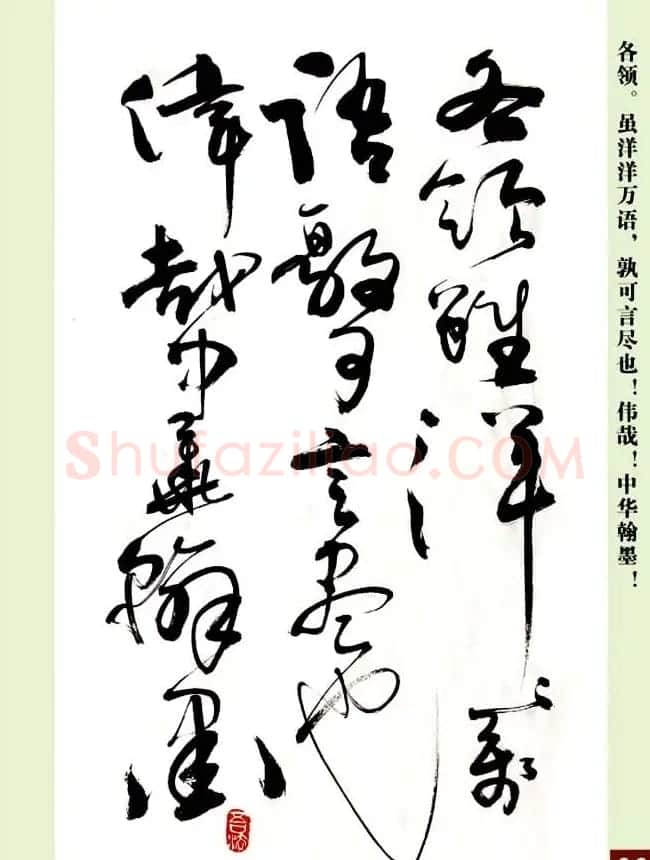 各領雖洋〻萬
語孰可言盡也
偉哉中華翰墨
各领。虽洋洋万语，孰可言尽也！伟哉！中华翰墨！
Shufaziliao.COM